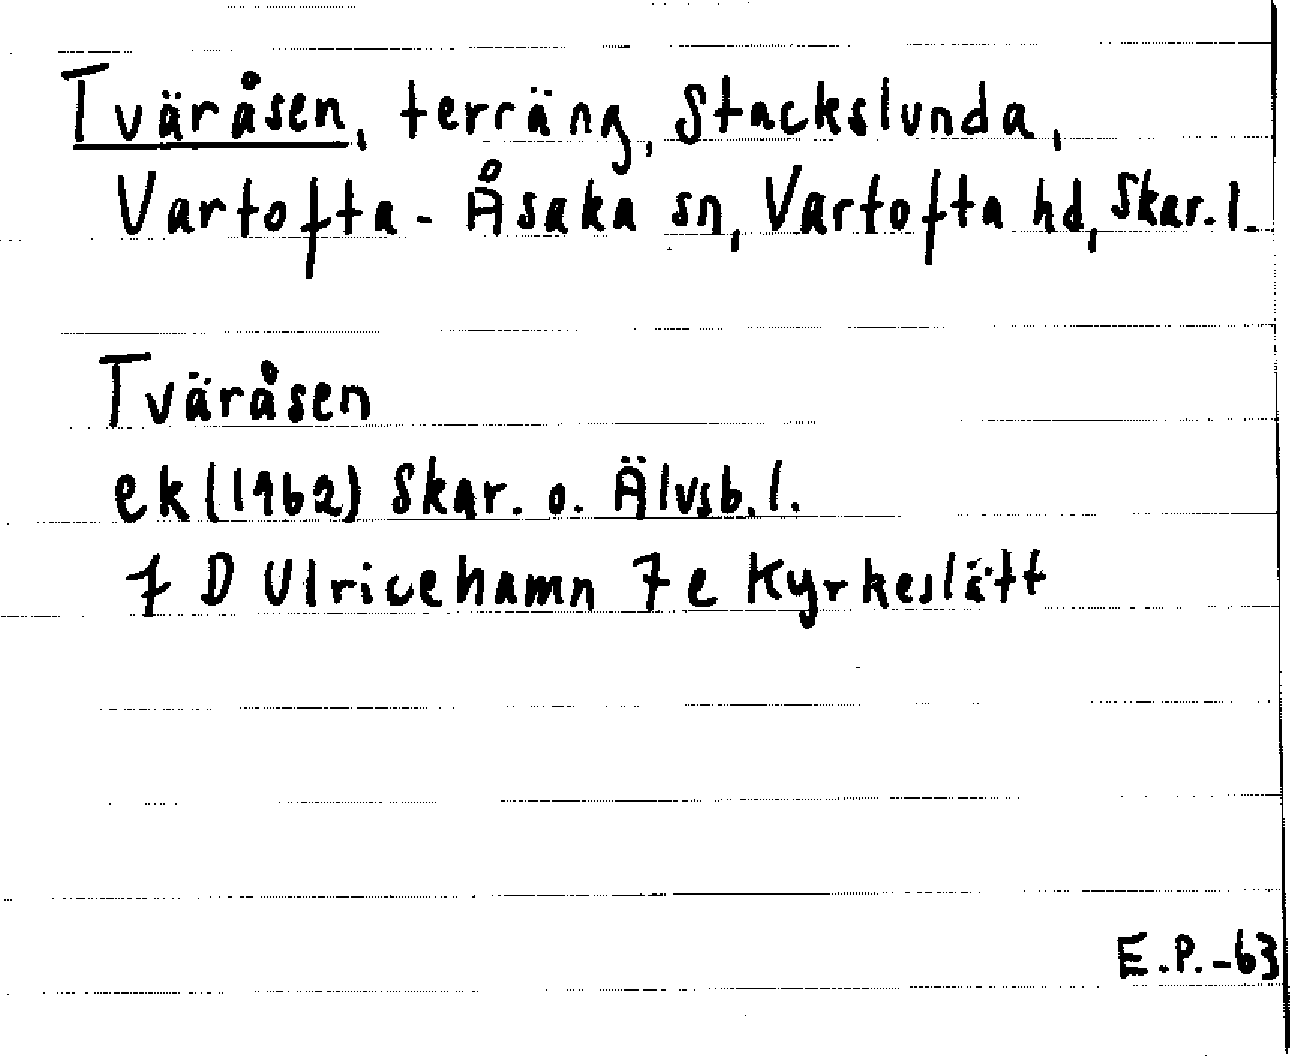 Tväråsen, terräng, Stackslunda,
Vartofta-Åsaka sn, Vartofta hd, Skar.l.
Tväråsen
ek (1962) Skar. o. Älvsb. l.
7 D Ulricehamn 7 e Kyrkeslätt
E.P.-63